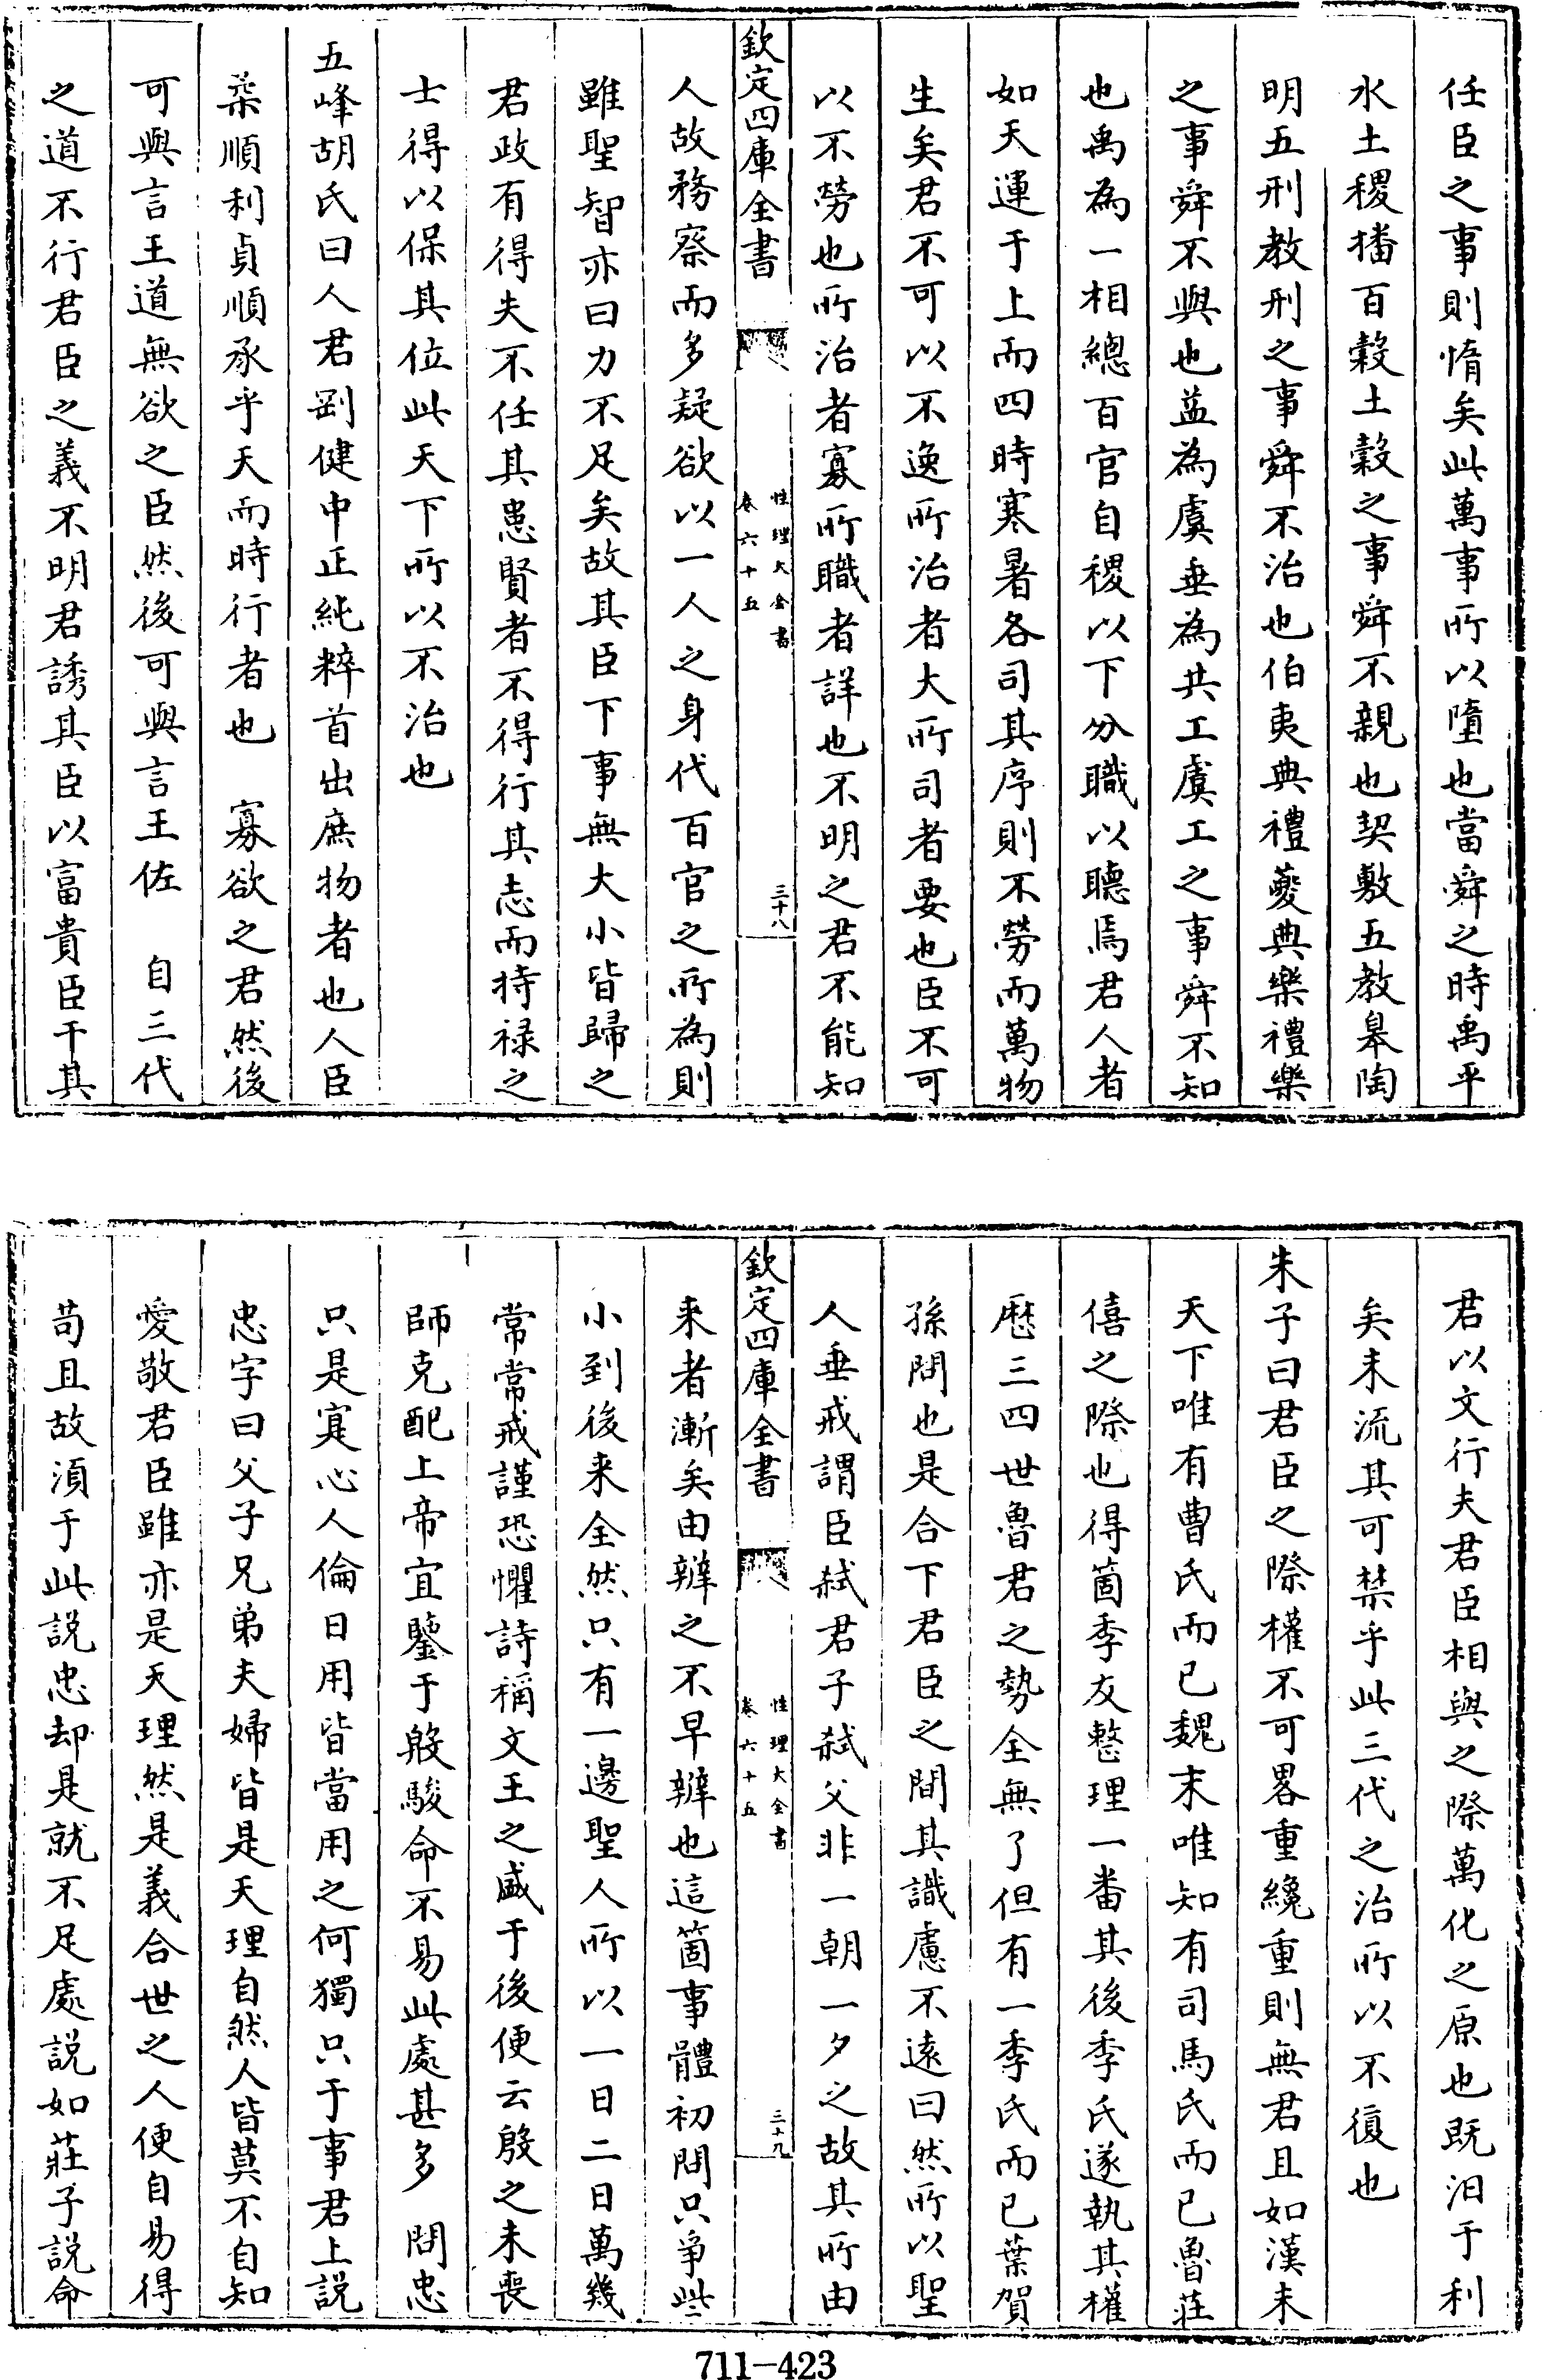 任臣之事則惰矣此萬事所以墮也當舜之時禹平
水土稷播百穀土穀之事舜不親也契敷五教皋陶
明五刑教刑之事舜不治也伯夷典禮夔典樂禮樂
之事舜不與也益為虞垂為共工虞工之事舜不知
也禹為一相總百官自稷以下分職以聽焉君人者
如天運于上而四時寒暑各司其序則不勞而萬物
生矣君不可以不逸所治者大所司者要也臣不可
以不勞也所治者寡所職者詳也不明之君不能知
欽定四庫全書
性理大全書
卷六十五
三十八
人故務察而多疑欲以一人之身代百官之所為則
雖聖智亦日力不足矣故其臣下事無大小皆歸之
君政有得失不任其患賢者不得行其志而持祿之
士得以保其位此天下所以不治也
五峰胡氏曰人君剛健中正純粹首出庶物者也人臣
柔順利貞順承乎天而時行者也 寡欲之君然後
可與言王道無欲之臣然後可與言王佐 自三代
之道不行君臣之義不明君誘其臣以富貴臣干其
君以文行夫君臣相與之際萬化之原也既汨于利
矣末流其可禁乎此三代之治所以不復也
朱子曰君臣之際權不可畧重纔重則無君且如漢末
天下唯有曹氏而已魏末唯知有司馬氏而已魯莊
僖之際也得箇季友整理一番其後季氏遂執其權
歷三四世魯君之勢全無了但有一季氏而已葉賀
孫問也是合下君臣之間其識慮不遠曰然所以聖
人垂戒謂臣弑君子弑父非一朝一夕之故其所由
欽定四庫全書
性理大全書
卷六十五
三十九
來者漸矣由辨之不早辨也這箇事體初間只爭些
小到後來全然只有一邊聖人所以一日二日萬幾
常常戒謹恐懼詩稱文王之盛于後便云殷之未喪
師克配上帝宜鑒于殷駿命不易此處甚多 問忠
只是寔心人倫日用皆當用之何獨只于事君上說
忠字曰父子兄弟夫婦皆是天理自然人皆莫不自知
愛敬君臣雖亦是天理然是義合世之人便自易得
苟且故須于此說忠却是就不足處說如莊子說命
711-423